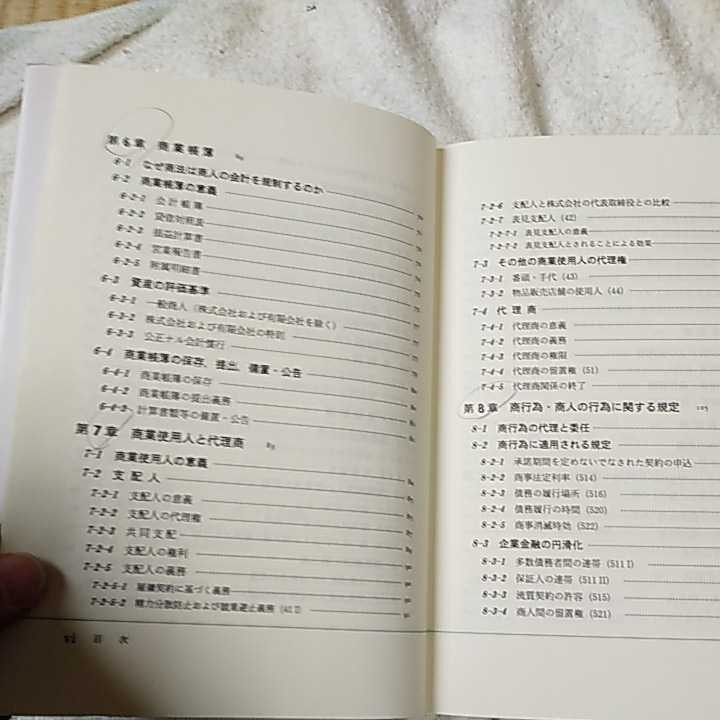 第6章 商業帳簿
6-1 なぜ商法は商人の会計を規制するのか
6-2 商業帳簿の意義
6-2-1 会計帳簿
6-2-2 貸借対照表
6-2-3 損益計算書
6-2-4 営業報告書
6-2-5 附属明細書
6-3 資産の評価基準
6-3-1 一般商人（株式会社および有限会社を除く）
6-3-2 株式会社および有限会社の特則
6-3-3 公正ナル会計慣行
6-4 商業帳簿の保存、提出、備置・公告
6-4-1 商業帳簿の保存
6-4-2 商業帳簿の提出義務
6-4-3 計算書類等の備置・公告
第7章 商業使用人と代理商
7-1 商業使用人の意義
7-2 支配人
7-2-1 支配人の意義
7-2-2 支配人の代理権
7-2-3 共同支配
7-2-4 支配人の権利
7-2-5 支配人の義務
7-2-5-1 雇傭契約に基づく義務
7-2-5-2 精力分散防止および競業避止義務 (41 I)
vi 目次
7-2-6 支配人と株式会社の代表取締役との比較
7-2-7 表見支配人 (42)
7-2-7-1 表見支配人の意義
7-2-7-2 表見支配人とされることによる効果
7-3 その他の商業使用人の代理権
7-3-1 番頭・手代 (43)
7-3-2 物品販売店舗の使用人 (44)
7-4 代理商
7-4-1 代理商の意義
7-4-2 代理商の義務
7-4-3 代理商の権限
7-4-4 代理商の留置権 (51)
7-4-5 代理商関係の終了
第8章 商行為・商人の行為に関する規定 105
8-1 商行為の代理と委任
8-2 商行為に適用される規定
8-2-1 承諾期間を定めないでなされた契約の申込
8-2-2 商事法定利率 (514)
8-2-3 債務の履行場所 (516)
8-2-4 債務履行の時間 (520)
8-2-5 商事消滅時効 (522)
8-3 企業金融の円滑化
8-3-1 多数債務者間の連帯 (511 I)
8-3-2 保証人の連帯 (511 II)
8-3-3 流質契約の許容 (515)
8-3-4 商人間の留置権 (521)